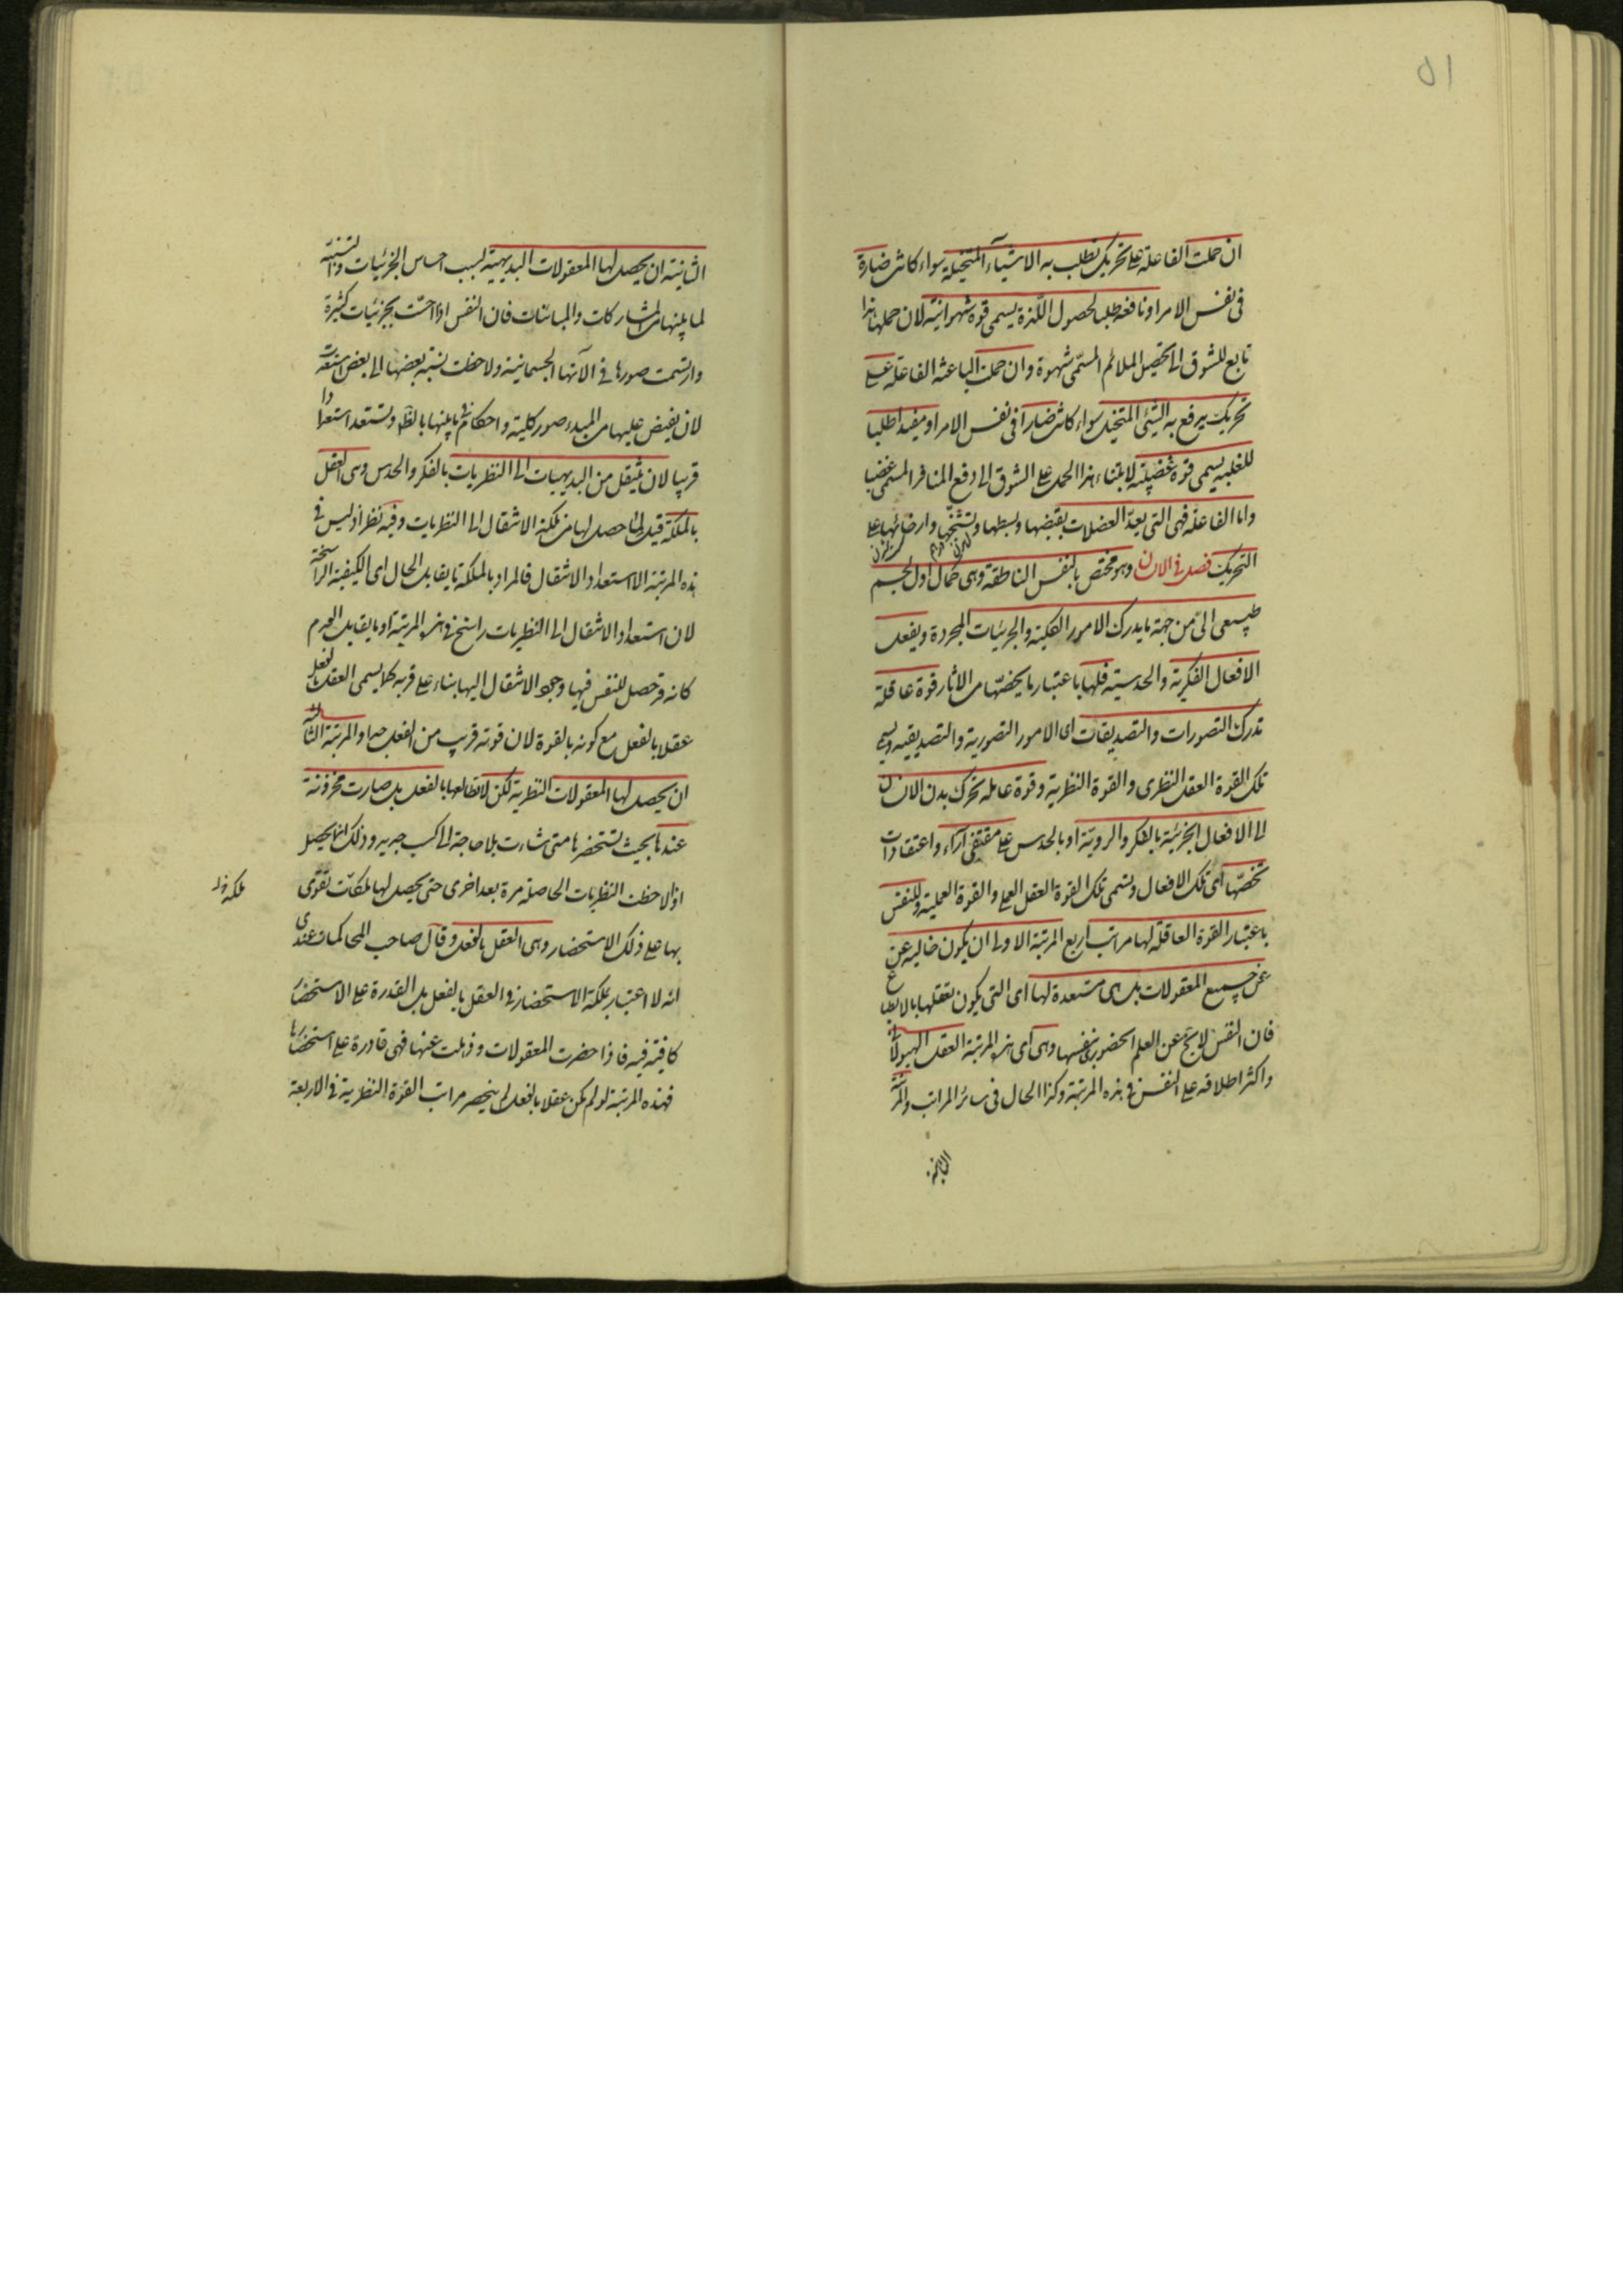 ٥١
ان حملت الفاعلة على تحريك تطلب به الاشياء المتخيلة سواء كانت ضارة
فى نفس الامر او نافعة طلبا لحصول اللذة يسمى قوة شهوانية لان حملها هذا
تابع للشوق الى تحصيل الملائم المسمى شهوة وان حملت الباعثة الفاعلة على
تحريك يرفع به الشيئ المتخيل سواء كانت ضارا فى نفس الامر او مفيدا طلبا
للغلبة يسمى قوة غضبية لابتناء هذا الحمل على الشوق الى دفع المنافر المسمى غضبا
واما الفاعلة فهى التى يعد العضلات بقبضها وبسطها وتشنجها وارخائها على
التحريك فصل فى الانسان وهو مختص بالنفس الناطقة وهى كمال اول لجسم
طبيعى آلى من جهة ما يدرك الامور الكلية والجزئيات المجردة ويفعل
الافعال الفكرية والحدسية فلها باعتبار ما يخصها من الاثار قوة عاقلة
تدرك التصورات والتصديقات اى الامور التصورية والتصديقية ويسمى
تلك القوة العقل النظرى والقوة النظرية وقوة عاملة تحرك بدن الانسان
الى الافعال الجزئية بالفكر والروية او بالحدس على مقتضى آراء واعتقادات
تخصها اى تلك الافعال وتسمى تلك القوة العقل العملى والقوة العملية وللنفس
باعتبار القوة العاقلة لها مراتب اربع المرتبة الاولى ان يكون خالية عن
عن جميع المعقولات بل هى مستعدة لها اى التى يكون تعقلها بالانطباع
فان النفس لا يخ عن العلم الحضورى بنفسها وهى اى هذه المرتبة العقل الهيولانى
واكثر اطلاقه على النفس فى هذه المرتبة وكذا الحال فى سائر المراتب والمرتبة
الثانية
الثانية ان يحصل لها المعقولات البديهية بسبب احساس الجزئيات والتنبه
لما بينها من المشاركات والمباينات فان النفس اذا احست بجزئيات كثيرة
وارتسمت صورها فى الآتها الجسمانية ولاحظت نسبة بعضها الى بعض استعدت
لان يفيض عليها من المبدء صور كلية واحكام فيما بينها بالنظر وتستعد استعدادا
قريبا لان ينتقل من البديهيات الى النظريات بالفكر والحدس وهى العقل
بالملكة قيل لما حصل لها من ملكة الانتقال الى النظريات وفيه نظر اذ ليس فى
هذه المرتبة الا استعداد الانتقال فالمراد بالملكة ما يقابل الحال اى الكيفية الراسخة
لان استعداد الانتقال الى النظريات راسخ فى هذه المرتبة او ما يقابل العدم
كانه قد حصل للنفس فيها وجود الانتقال اليها بناء على قربه كما يسمى العقل بالفعل
عقلا بالفعل مع كونه بالقوة لان قوته قريب من الفعل جدا والمرتبة الثالثة
ان يحصل لها المعقولات النظرية لكن لا تطالعها بالفعل بل صارت مخزونة
عندها بحيث تستحضرها متى شاءت بلا حاجة الى كسب جديد وذلك انما يحصل
اذا لاحظت النظريات الحاصلة مرة بعد اخرى حتى يحصل لها ملكات تقوى
بها على ذلك الاستحضار وهى العقل بالفعل وقال صاحب المحاكمات عندى
انه لا اعتبار بملكة الاستحضار فى العقل بالفعل بل القدرة على الاستحضار
كافية فيه فاذا حضرت المعقولات وذهلت عنها فهى قادرة على استحضارها
فهذه المرتبة لو لم يكن عقلا بالفعل لم ينحصر مراتب القوة النظرية فى الاربعة